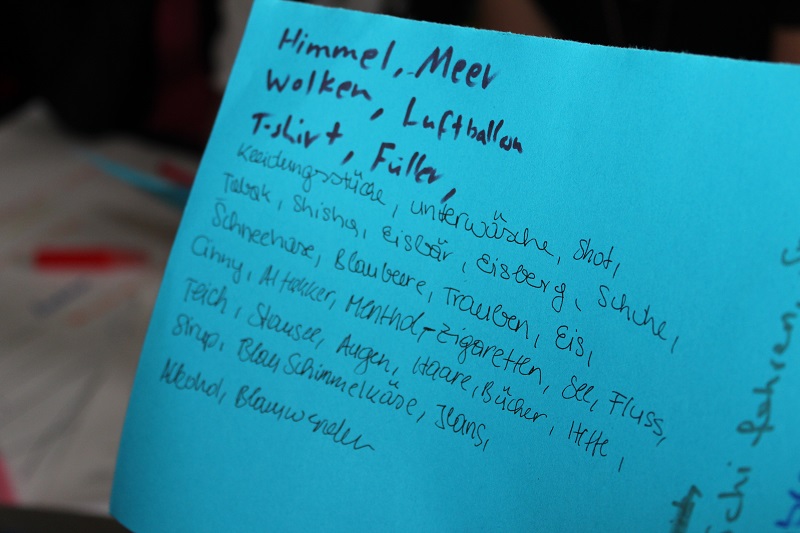 Himmel, Meer
Wolken, Luftballon
T-shirt, Füller,
Kleidungsstücke, unterwäsche, Shot,
Tabak, Shisha, Eisbär, Eisberg, Schuhe,
Schneehase, Blaubeere, Trauben, Eis,
Cinny, Altakker, Menthol-Zigaretten, See, Fluss,
Teich, Stausee, Augen, Haare, Bücher, Hefte,
Sirup, Blau Schimmelkäse, Jeans,
Alkohol, Blauwerden
schi fahren,